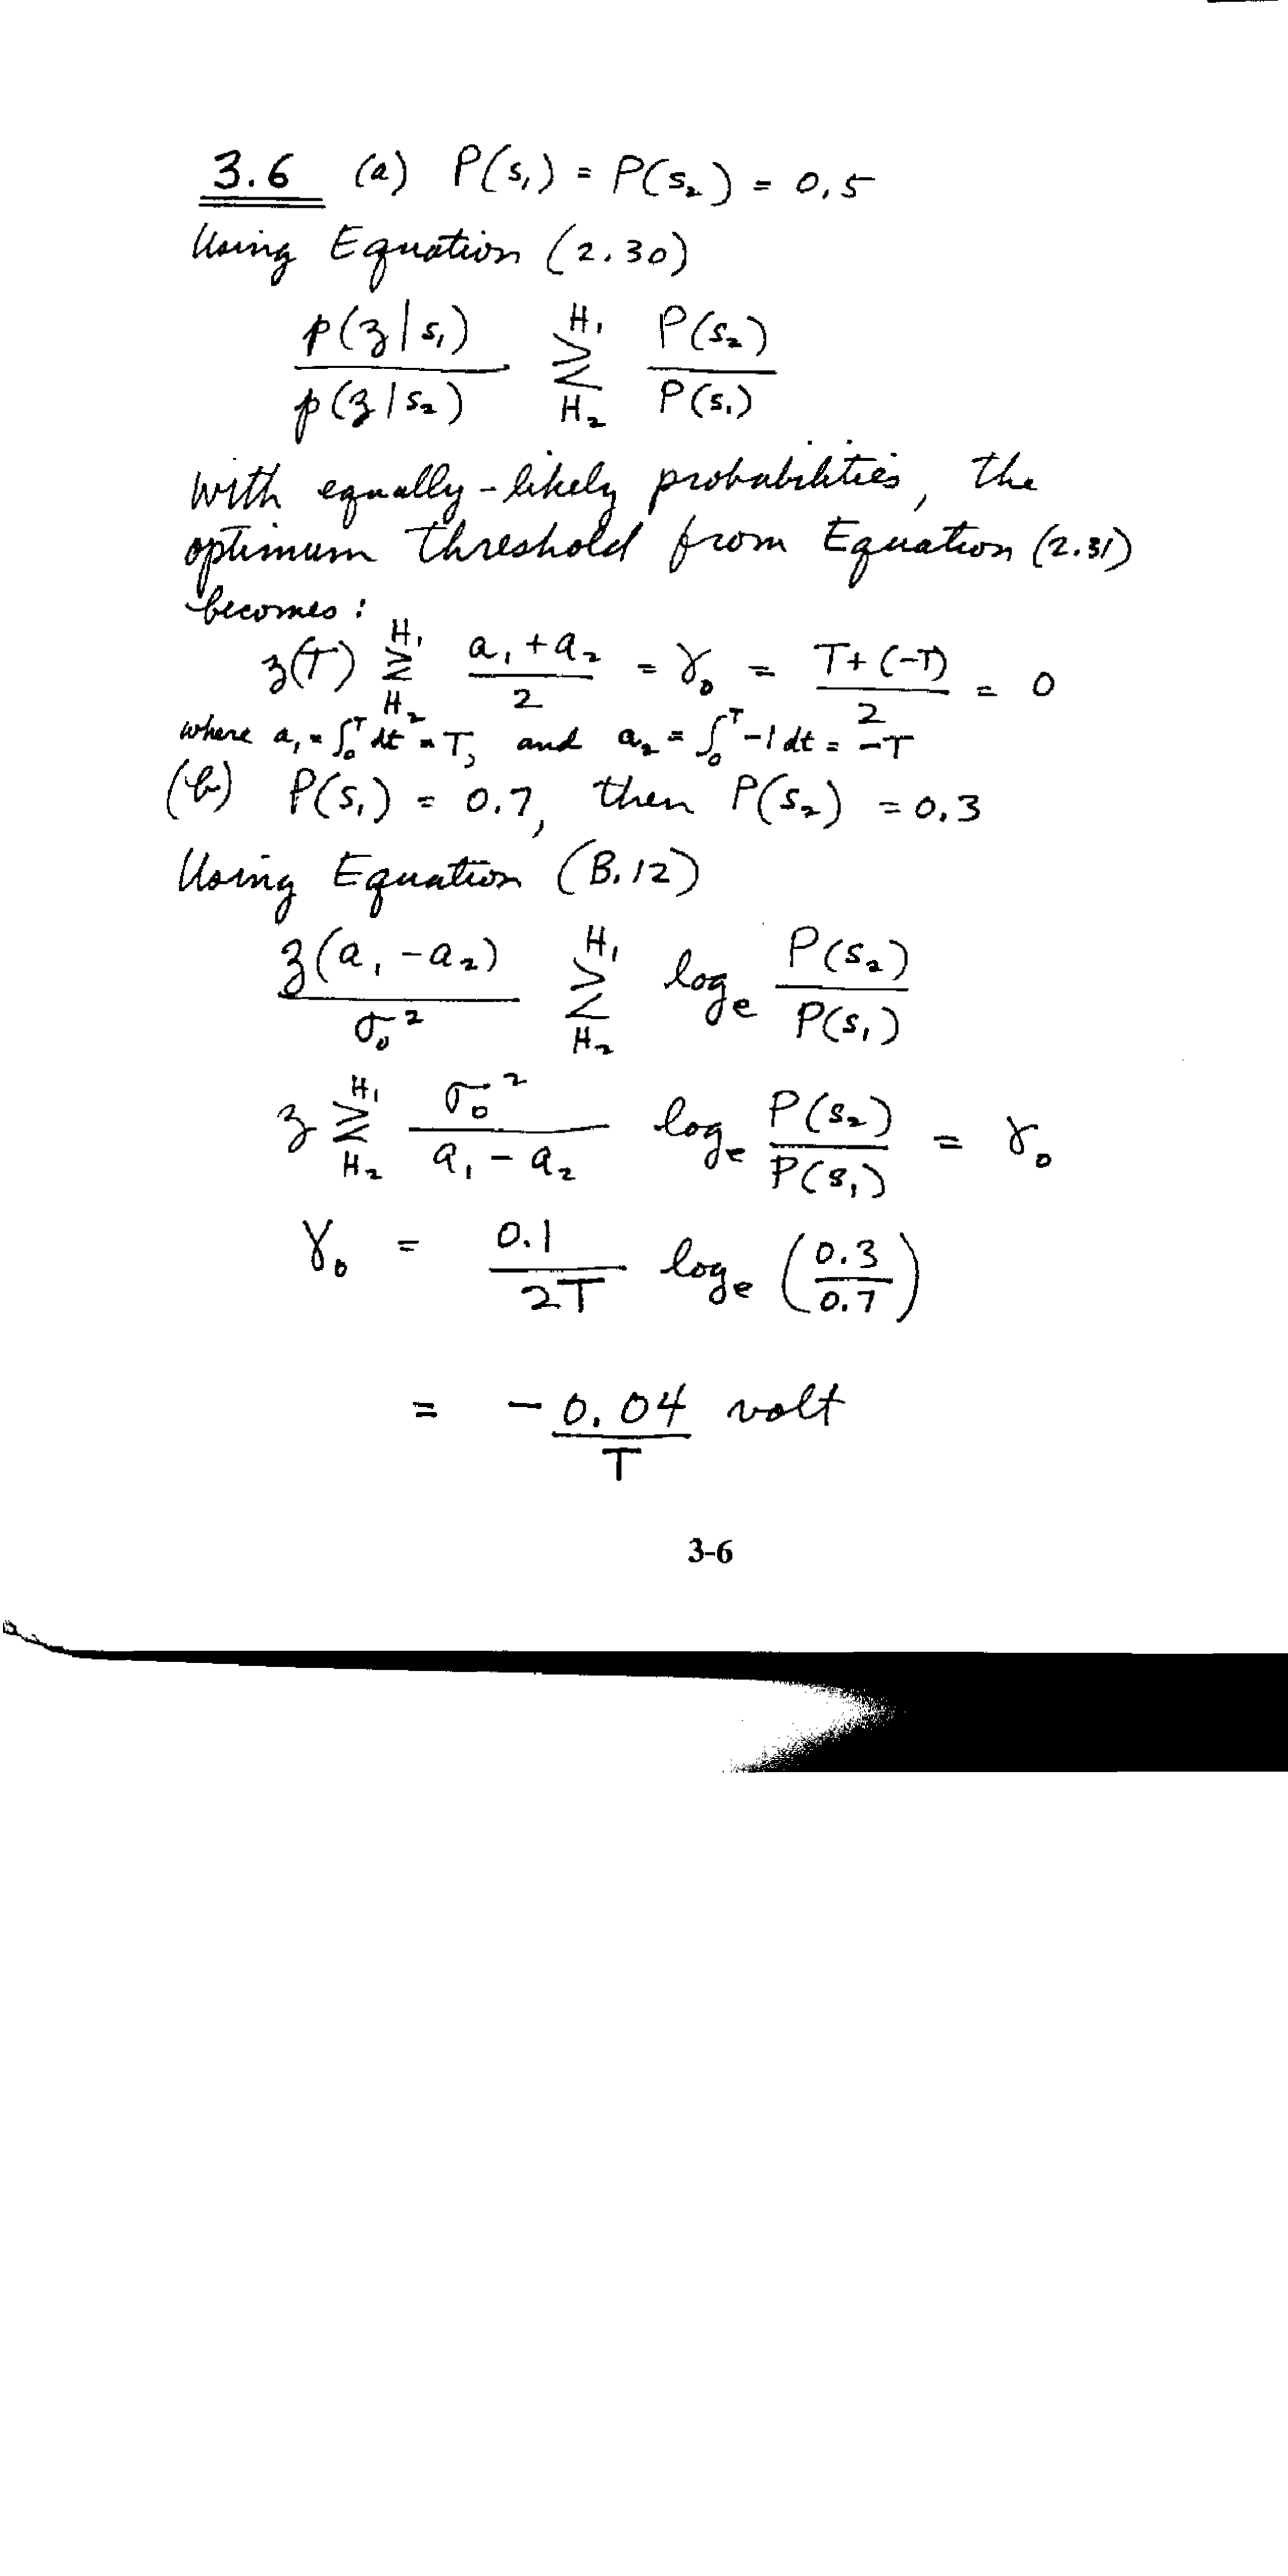 3.6 (a) P(s₁) = P(s₂) = 0.5
Using Equation (2.30)
p(z|s₁) / p(z|s₂) ≷ (H₁ / H₂) P(s₂) / P(s₁)
with equally-likely probabilities, the
optimum threshold from Equation (2.31)
becomes:
z(T) ≷ (H₁ / H₂) (a₁ + a₂) / 2 = γ₀ = (T + (-T)) / 2 = 0
where a₁ = ∫₀ᵀ dt = T, and a₂ = ∫₀ᵀ -1 dt = -T
(b) P(s₁) = 0.7, then P(s₂) = 0.3
Using Equation (B.12)
z(a₁ - a₂) / σ₀² ≷ (H₁ / H₂) logₑ P(s₂) / P(s₁)
z ≷ (H₁ / H₂) σ₀² / (a₁ - a₂) logₑ P(s₂) / P(s₁) = γ₀
γ₀ = 0.1 / 2T logₑ (0.3 / 0.7)
= -0.04 / T volt
3-6